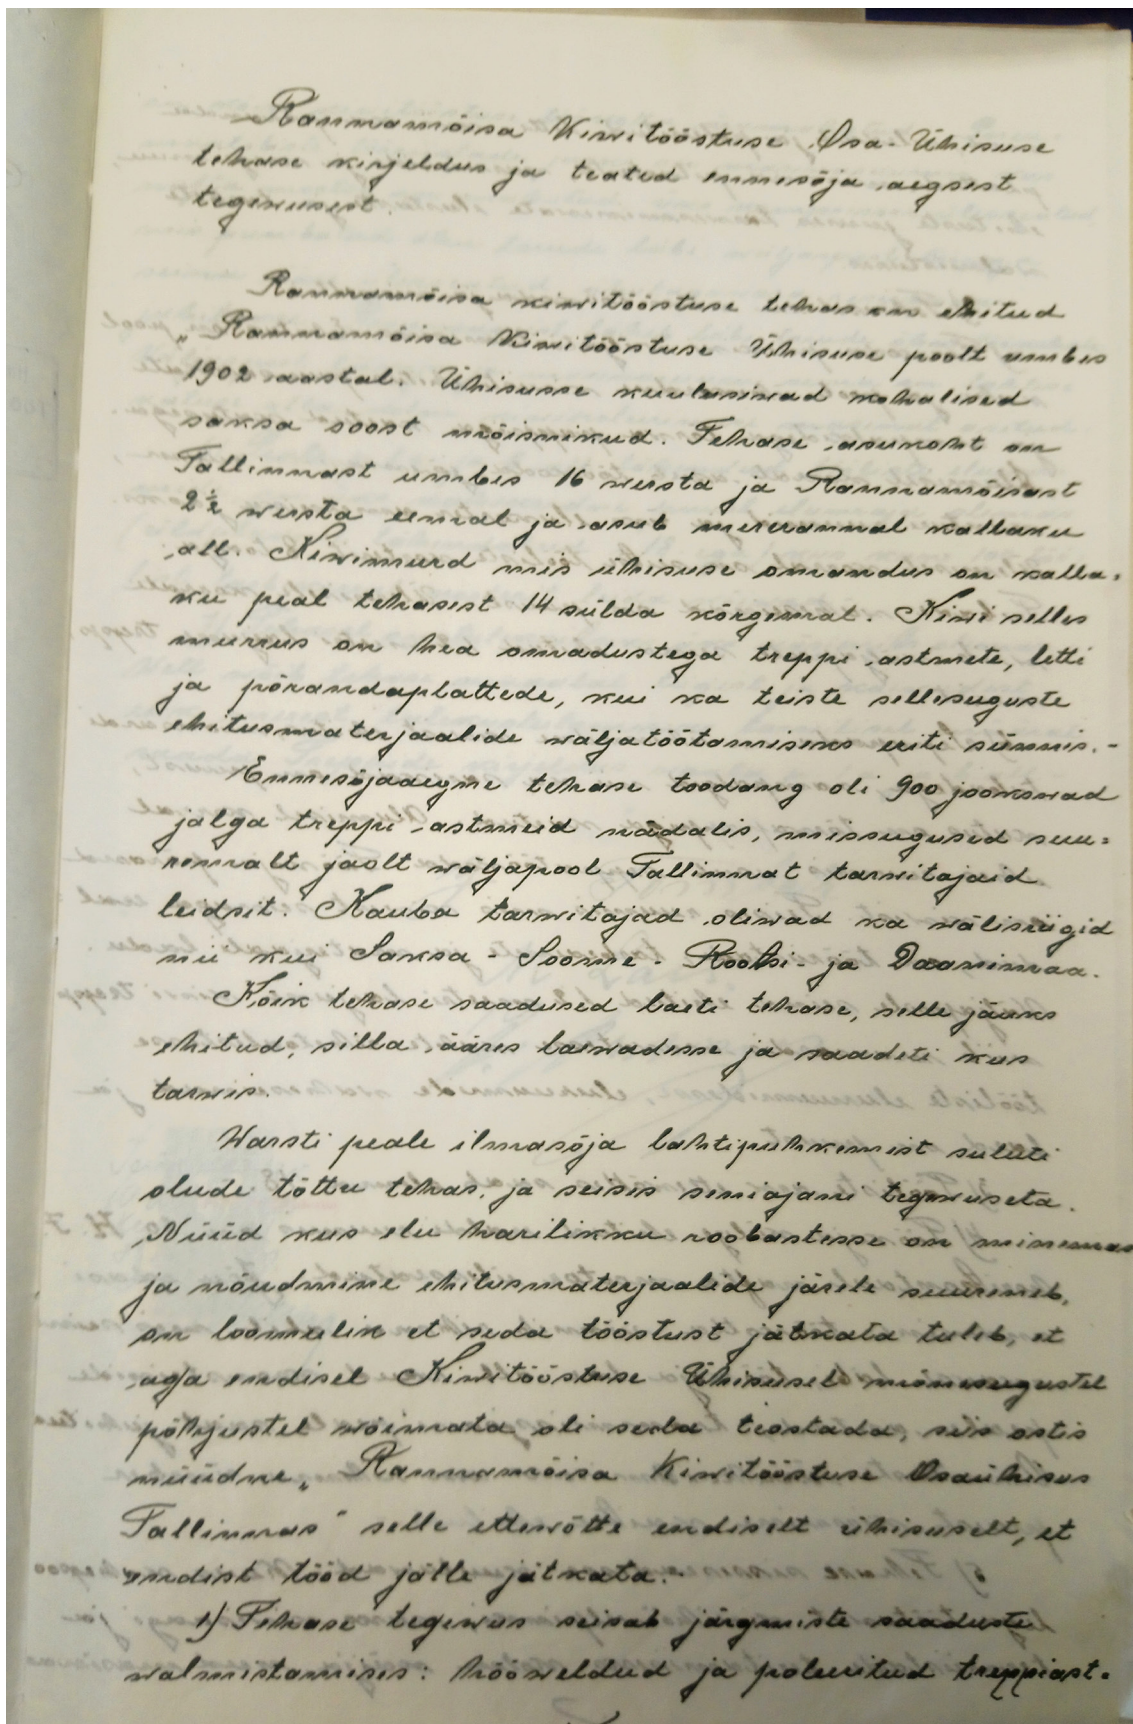 Rannamõisa Kiwitööstuse Osa-Ühisuse
tehase kirjeldus ja teated ennesõja aegsest
tegewusest.
Rannamõisa kiwitööstuse tehas on ehitud
„Rannamõisa Kiwitööstuse Ühisuse poolt umbes
1902 aastal. Ühisusse kuulusiwad kohalised
saksa soost mõisnikud. Tehase asukoht on
Tallinnast umbes 16 wersta ja Rannamõisast
2½ wersta eemal ja asub mererannal kallaku
all. Kiwimurd mis ühisuse omandus on kalla=
ku peal tehasest 14 sülda kõrgemal. Kiwi selles
murrus on hea omadustega treppi astmete, letti
ja põrandaplattede, kui ka teiste sellesuguste
ehitusmaterjaalide wäljatöötamiseks eriti sünnis.-
Ennesõjaaegne tehase toodang oli 900 jookswad
jalga treppi-astmeid nädalis, missugused suu=
remalt jaolt wäljapool Tallinnat tarwitajaid
leidsit. Kauba tarwitajad oliwad ka wälisriigid
nii kui Saksa - Soome - Rootsi - ja Daanimaa.
Kõik tehase saadused laeti tehase, selle jäuks
ehitud, silla ääres laewadesse ja saadeti kus
tarwis.
Warsti peale ilmasõja lahtipuhkemist suleti
olude tõttu tehas, ja seisis seniajani tegewuseta.
Nüüd kus elu harilikku roobastesse on minemas
ja nõudmine ehitusmaterjaalide järele suureneb,
on loomulik et seda tööstust jätkata tuleb, et
aga endisel Kiwitööstuse Ühisusel mõnesugustel
põhjustel wõimata oli seda teostada, siis ostis
nüüdne „Rannamõisa Kiwitööstuse Osaühisus
Tallinnas" selle ettewõtte endiselt ühisuselt, et
endist tööd jälle jätkata.-
1) Tehase tegewus seisab järgmiste saaduste
walmistamises: hööweldud ja poleeritud treppiast=